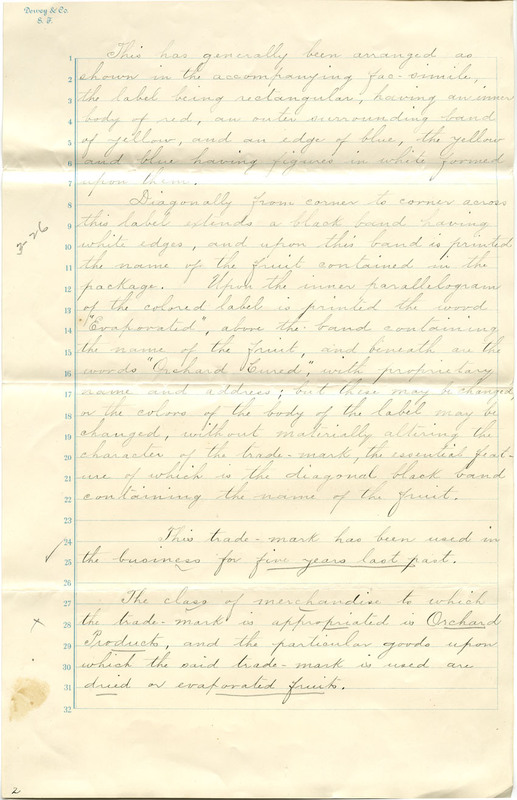 Dewey & Co.
S. F.
1 This has generally been arranged as
2 shown in the accompanying fac-simile,
3 the label being rectangular, having an inner
4 body of red, an outer surrounding band
5 of yellow, and an edge of blue, the yellow
6 and blue having figures in white formed
7 upon them.
8 Diagonally from corner to corner across
9 this label extends a black band having
10 white edges, and upon this band is printed
11 the name of the fruit contained in the
12 package. Upon the inner parallelogram
13 of the colored label is printed the word
14 "Evaporated", above the band containing
15 the name of the fruit, and beneath are the
16 words "Orchard Cured", with proprietary
17 name and address; but these may be changed,
18 or the colors of the body of the label may be
19 changed, without materially altering the
20 character of the trade-mark, the essential feat-
21 ure of which is the diagonal black band
22 containing the name of the fruit.
23
24 This trade-mark has been used in
25 the business for five years last past.
26
27 The class of merchandise to which
28 the trade-mark is appropriated is Orchard
29 Products, and the particular goods upon
30 which the said trade-mark is used are
31 dried or evaporated fruits.
32
3-26
x
2